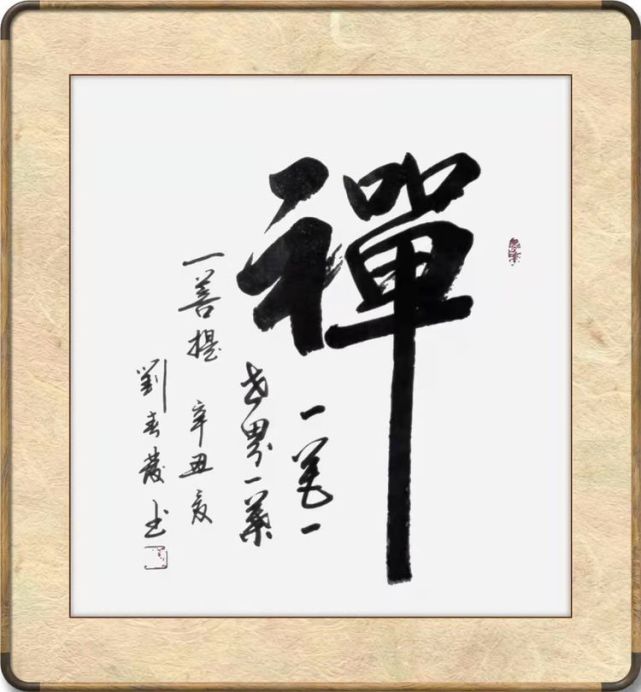 禪
一花一
世界一葉
一菩提 辛丑夏
劉春發书